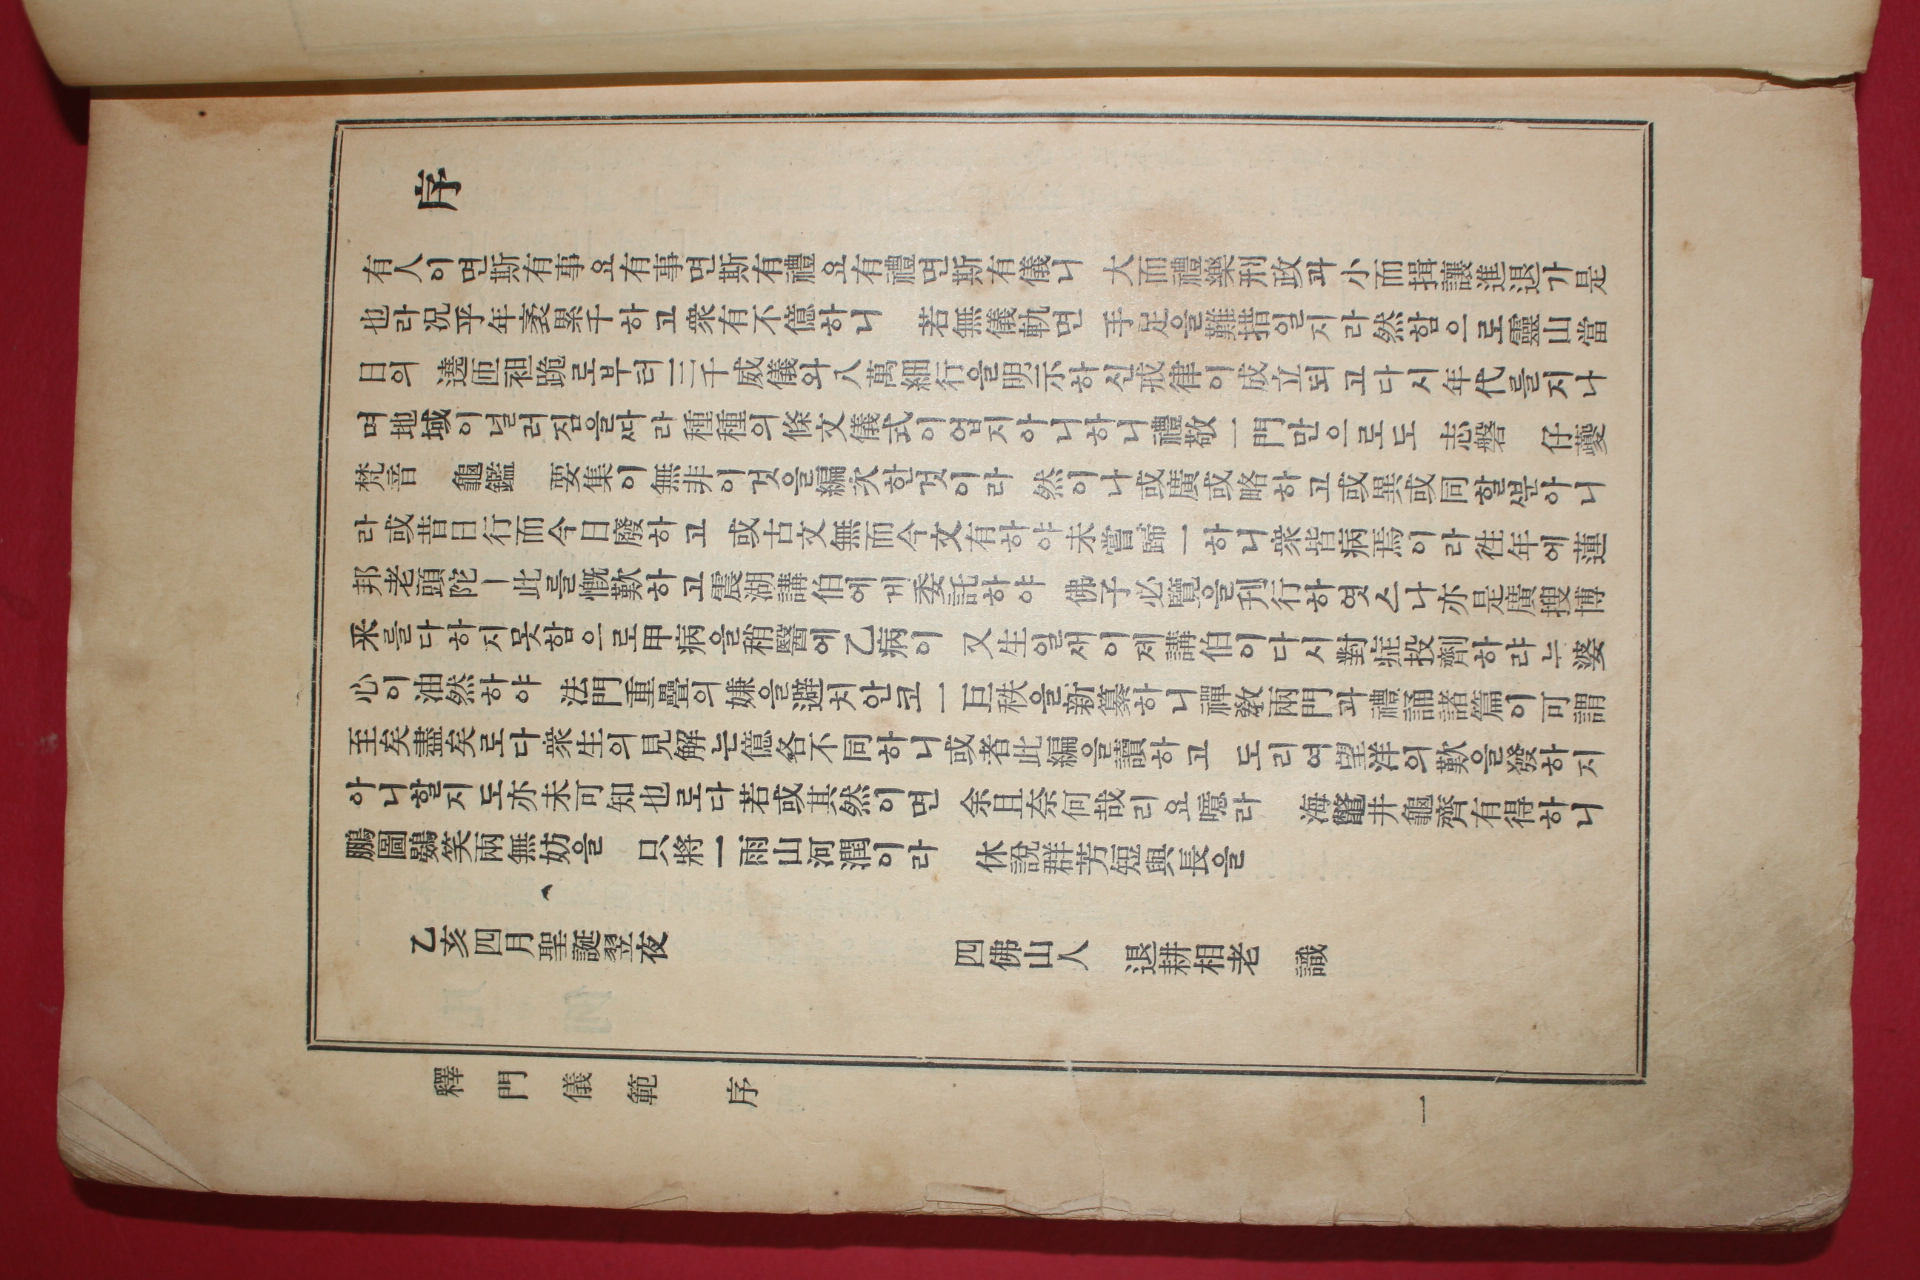 序
有人이면斯有事요有事면斯有禮요有禮면斯有儀니 大而禮樂刑政과小而揖讓進退가是
也라况乎年袤累千하고衆有不億하니 若無儀軌면 手足을難措일지라然함으로靈山當
日의 遶匝袒跪로부터三千威儀와八萬細行을明示하신戒律이成立되고다시年代를지나
며地域이널러짐을따라種種의條文儀式이업지아니하니禮敬一門만으로도 志磐 仔夔
梵音 龜鑑 要集이無非이것을編次한것이라 然이나或廣或略하고或異或同할뿐아니
라或昔日行而今日廢하고 或古文無而今文有하야未嘗歸一하니衆皆病焉이라徃年에蓮
邦老頭陀ㅣ此를慨歎하고震湖講伯에게委託하야 佛子必覽을刊行하엿스나亦是廣搜博
釆를다하지못함으로甲病을稍醫에乙病이 又生일새이제講伯이다시對症投劑하랴는婆
心이油然하야 法門重疊의嫌을避치안코一巨秩을新纂하니禪敎兩門과禮誦諸篇이可謂
至矣盡矣로다衆生의見解는億各不同하니或者此編을讀하고 도리여望洋의歎을發하지
아니할지도亦未可知也로다若或其然이면 余且奈何哉리요噫라 海鼈井龜齊有得하니
鵬圖鷃笑兩無妨을 只將一雨山河潤이라 休說群芳短與長을
乙亥四月聖誕翌夜 四佛山人 退耕相老 識
釋門儀範 序 一